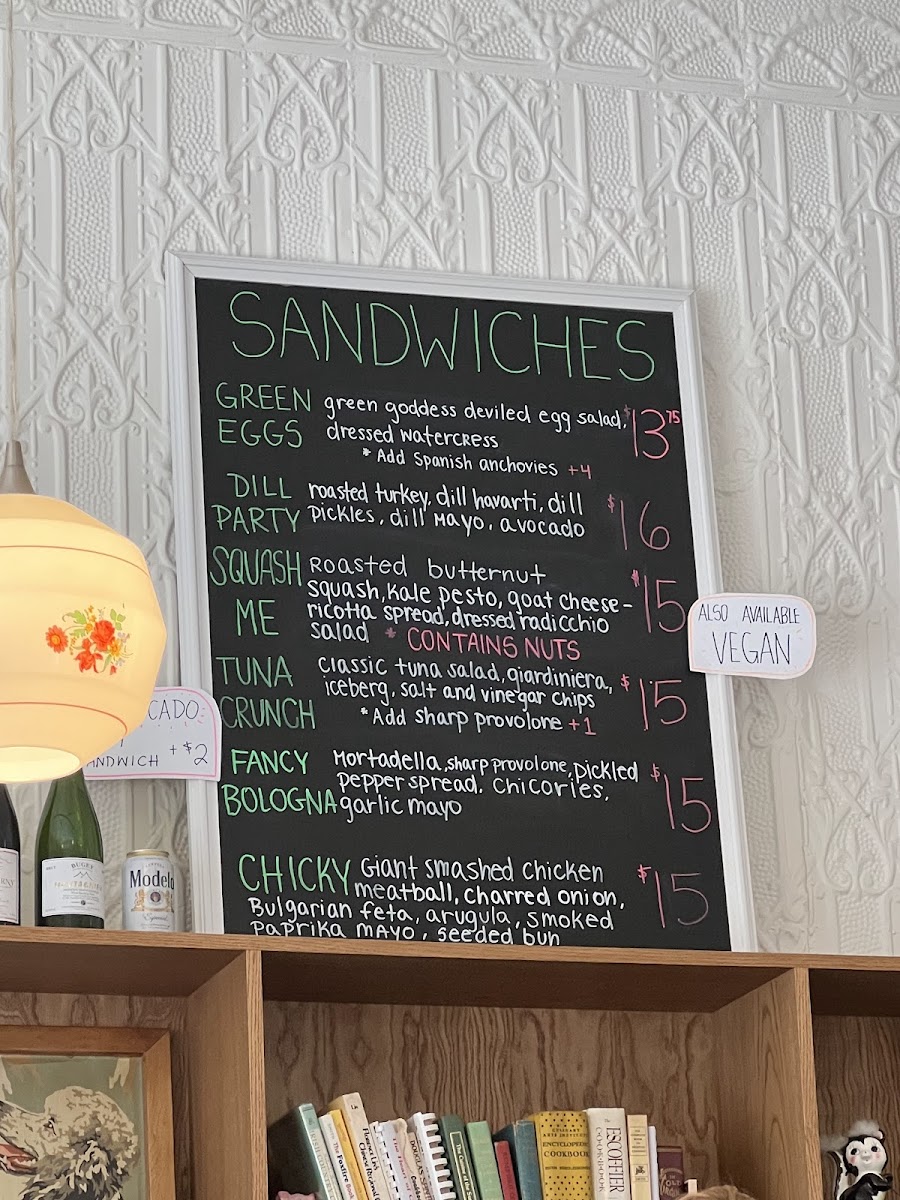 SANDWICHES
GREEN EGGS
green goddess deviled egg salad,
dressed watercress
* Add Spanish anchovies +4
$13.75
DILL PARTY
roasted turkey, dill havarti, dill
pickles, dill mayo, avocado
$16
SQUASH ME
Roasted butternut
squash, kale pesto, goat cheese-
ricotta spread, dressed radicchio
salad * CONTAINS NUTS
$15
ALSO AVAILABLE
VEGAN
TUNA CRUNCH
classic tuna salad, giardiniera,
iceberg, salt and vinegar chips
*Add sharp provolone +1
$15
FANCY BOLOGNA
Mortadella, sharp provolone, pickled
pepper spread, chicories,
garlic mayo
$15
CHICKY
Giant smashed chicken
meatball, charred onion,
Bulgarian feta, arugula, smoked
paprika mayo, seeded bun
$15
CADO
ANDWICH +$2
BUGEY
Modelo
Especial
CULINARY
ARTS INSTITUTE
ENCYCLOPEDIC
COOKBOOK
ESCOFFIER
COOK BOOK